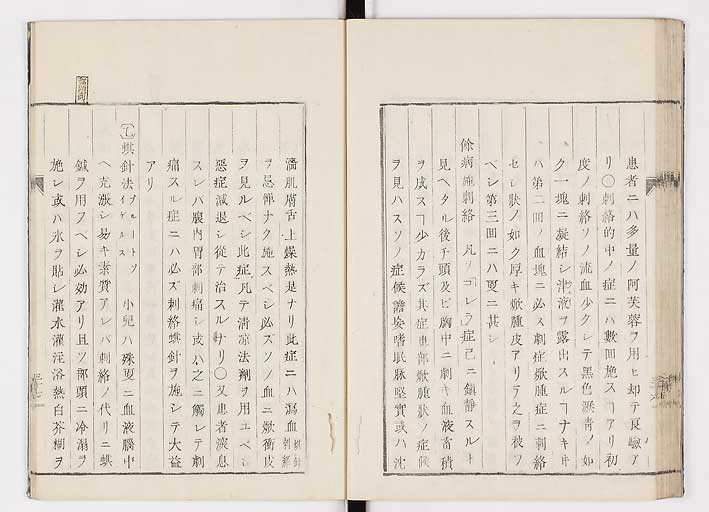 患者ニハ多量ノ阿芙蓉ヲ用ヒ却テ良驗ア
リ〇刺絡的中ノ症ニハ數回施スヿアリ初
度ノ刺絡ソノ流血少クシテ黑色溷濁ノ如
ク一塊ニ凝結シ津液ヲ露出スルヿナキヰ
ハ第二回ノ血塊ニ必ス劇症焮腫症ニ刺絡
セシ狀ノ如ク厚キ焮腫皮アリテ之ヲ被フ
ベシ第三回ニハ更ニ甚シ
餘病施刺絡 凡ソコレラ症已ニ鎮靜スルト
見ヘタル後チ頭及ビ胸中ニ劇キ血液畜積
ヲ成スヿ少カラズ其症患部焮腫狀ノ症候
ヲ見ハスソノ症候譫妄嗜眠脉堅實或ハ沈
濇肌膚舌上燥熱是ナリ此症ニハ瀉血蜞針刺絡
ヲ忌憚ナク施スベシ必ズソノ血ニ焮衝皮
ヲ見ルベシ此症凡テ清凉法劑ヲ用ユベシ
惡症減退シ從テ治スルナリ〇又患者深息
スレバ腹内胃部刺痛シ或ハ之ニ觸レテ劇
痛スル症ニハ必ズ刺絡蜞針ヲ施シテ大益
アリ
蜞針法 小兒ハ殊更ニ血液腦中
ヘ充漲シ易キ素質アレバ刺絡ノ代リニ蜞
鍼ヲ用フベシ必効アリ且ツ那頭ニ冷溻ヲ
施シ或ハ氷ヲ貼シ灌水灌淫浴熱白芥糊ヲ